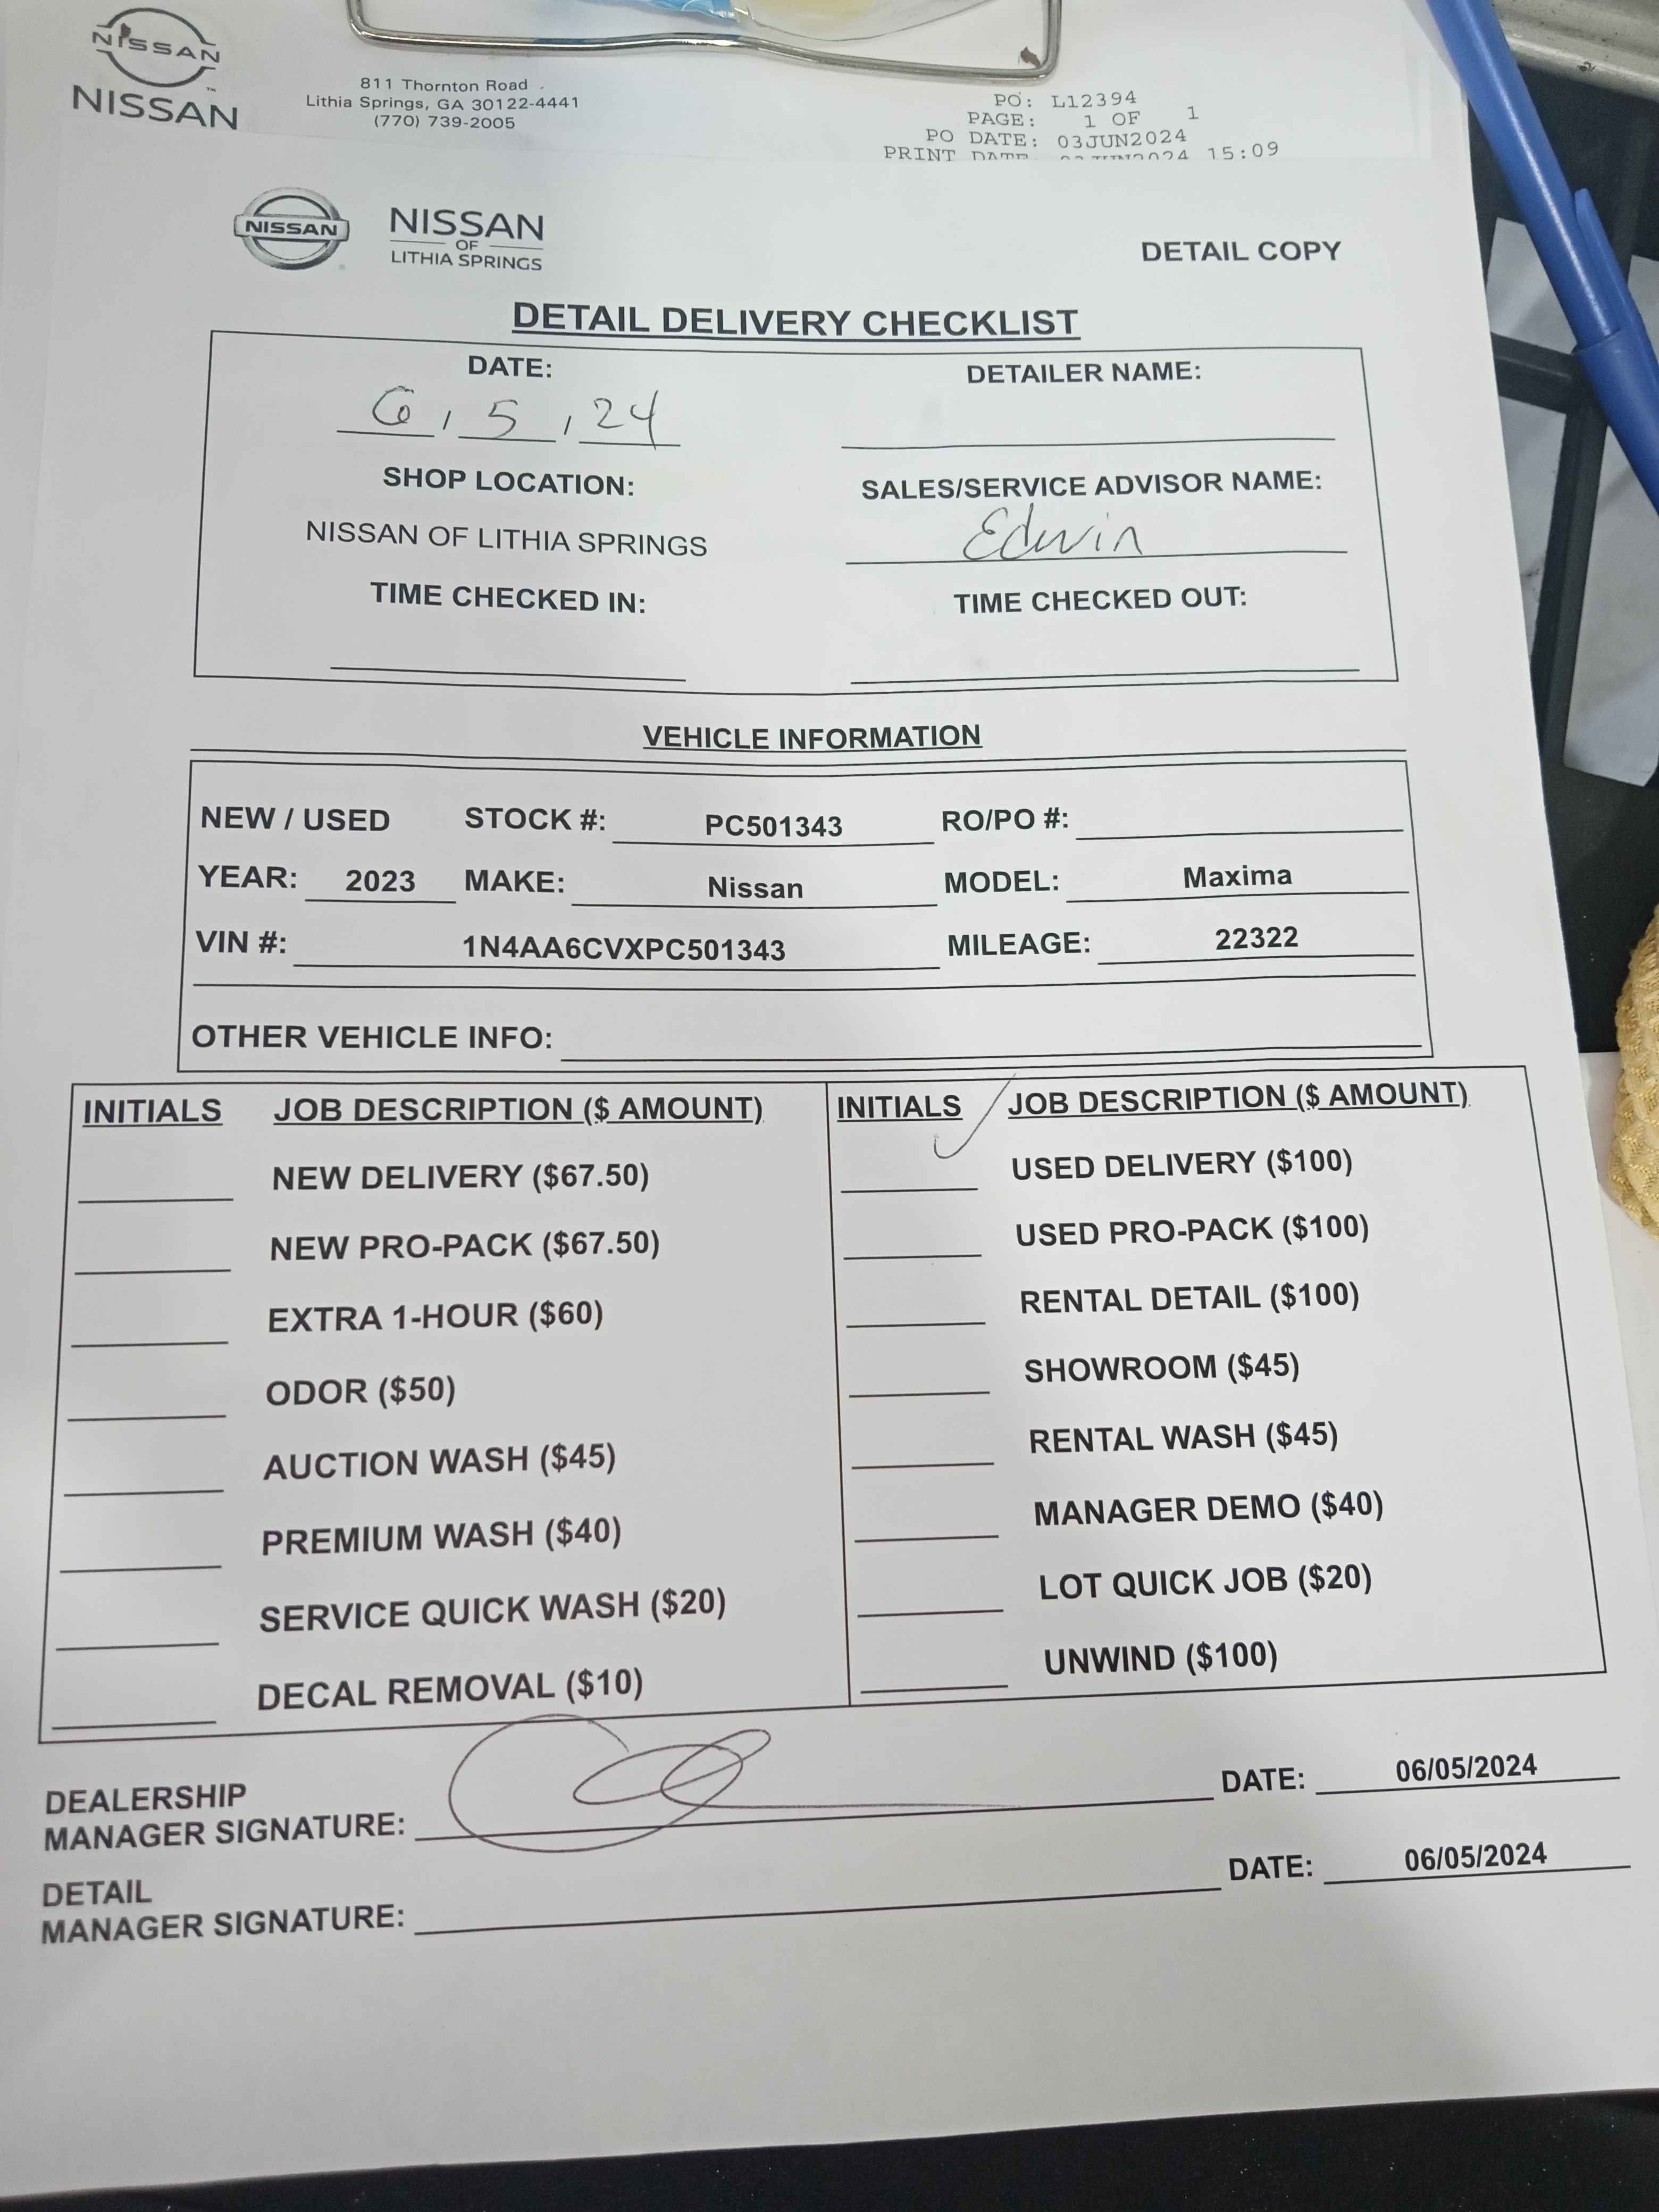 NISSAN
NISSAN
811 Thornton Road
Lithia Springs, GA 30122-4441
(770) 739-2005
PO: L12394
PAGE: 1 OF 1
PO DATE: 03JUN2024
PRINT DATE 15:09
NISSAN
NISSAN
OF
LITHIA SPRINGS
DETAIL COPY
DETAIL DELIVERY CHECKLIST
DATE: DETAILER NAME:
6 / 5 / 24
SHOP LOCATION: SALES/SERVICE ADVISOR NAME:
NISSAN OF LITHIA SPRINGS Edwin
TIME CHECKED IN: TIME CHECKED OUT:
VEHICLE INFORMATION
NEW / USED STOCK #: PC501343 RO/PO #:
YEAR: 2023 MAKE: Nissan MODEL: Maxima
VIN #: 1N4AA6CVXPC501343 MILEAGE: 22322
OTHER VEHICLE INFO:
INITIALS JOB DESCRIPTION ($ AMOUNT) INITIALS JOB DESCRIPTION ($ AMOUNT)
NEW DELIVERY ($67.50) USED DELIVERY ($100)
NEW PRO-PACK ($67.50) USED PRO-PACK ($100)
EXTRA 1-HOUR ($60) RENTAL DETAIL ($100)
ODOR ($50) SHOWROOM ($45)
AUCTION WASH ($45) RENTAL WASH ($45)
PREMIUM WASH ($40) MANAGER DEMO ($40)
SERVICE QUICK WASH ($20) LOT QUICK JOB ($20)
DECAL REMOVAL ($10) UNWIND ($100)
DEALERSHIP
MANAGER SIGNATURE: DATE: 06/05/2024
DETAIL
MANAGER SIGNATURE: DATE: 06/05/2024